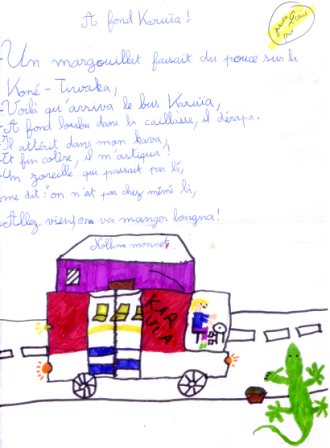 A fond Karuïa !
-Un margouillat faisait du pouce sur la
Koné - Tiwaka,
-Voilà qu'arriva le bus Karuïa,
-A fond bouba dans la caillasse, il dérapa.
-Il attérit dans mon kava,
-Et fin colère, il m'astiqua !
-Un zoreille qui passait par là,
me dit : "on n'est pas chez mémé là,
-Allez viens, on va manger bougna !
KARUIA